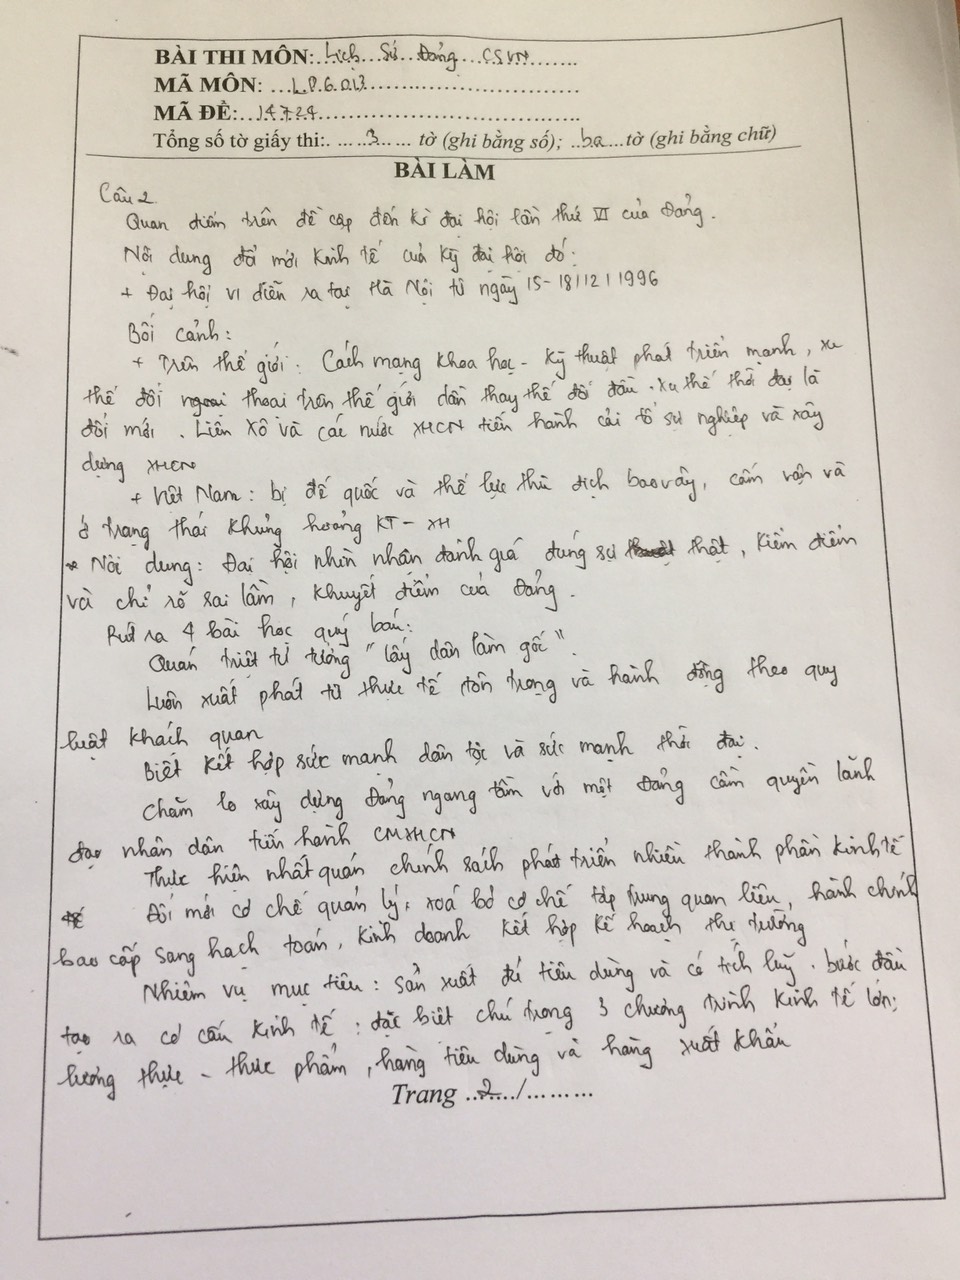 BÀI THI MÔN:..Lịch...Sử...Đảng...CSVN.......
MÃ MÔN: ...LP6013...................................
MÃ ĐỀ:...14724..........................................
Tổng số tờ giấy thi:. ... ..3... ... tờ (ghi bằng số); ..ba...tờ (ghi bằng chữ)
BÀI LÀM
Câu 2
Quan điểm trên đề cập đến kì đại hội lần thứ VI của Đảng.
Nội dung đổi mới kinh tế của kỳ đại hội đó:
+ Đại hội VI diễn ra tại Hà Nội từ ngày 15-18/12/1996
Bối cảnh:
+ Trên thế giới: Cách mạng khoa học - kỹ thuật phát triển mạnh, xu
thế đối ngoại thoại trên thế giới dần thay thế đối đầu. Xu thế thời đại là
đổi mới. Liên Xô và các nước XHCN tiến hành cải tổ sự nghiệp và xây
dựng XHCN
+ Việt Nam: bị đế quốc và thế lực thù địch bao vây, cấm vận và
ở trạng thái khủng hoảng KT - XH
* Nội dung: Đại hội nhìn nhận đánh giá đúng sự thật, kiểm điểm
và chỉ rõ sai lầm, khuyết điểm của Đảng.
Rút ra 4 bài học quý báu:
Quán triệt tư tưởng "lấy dân làm gốc".
Luôn xuất phát từ thực tế tôn trọng và hành động theo quy
luật khách quan
Biết kết hợp sức mạnh dân tộc và sức mạnh thời đại.
Chăm lo xây dựng Đảng ngang tầm với một Đảng cầm quyền lãnh
đạo nhân dân tiến hành CMXHCN
Thực hiện nhất quán chính sách phát triển nhiều thành phần kinh tế
Đổi mới cơ chế quản lý, xoá bỏ cơ chế tập trung quan liêu, hành chính
bao cấp sang hạch toán, kinh doanh kết hợp kế hoạch thị trường
Nhiệm vụ mục tiêu: sản xuất đủ tiêu dùng và có tích luỹ. bước đầu
tạo ra cơ cấu kinh tế: đặc biệt chú trọng 3 chương trình kinh tế lớn:
lương thực - thực phẩm, hàng tiêu dùng và hàng xuất khẩu
Trang ...2..../.........